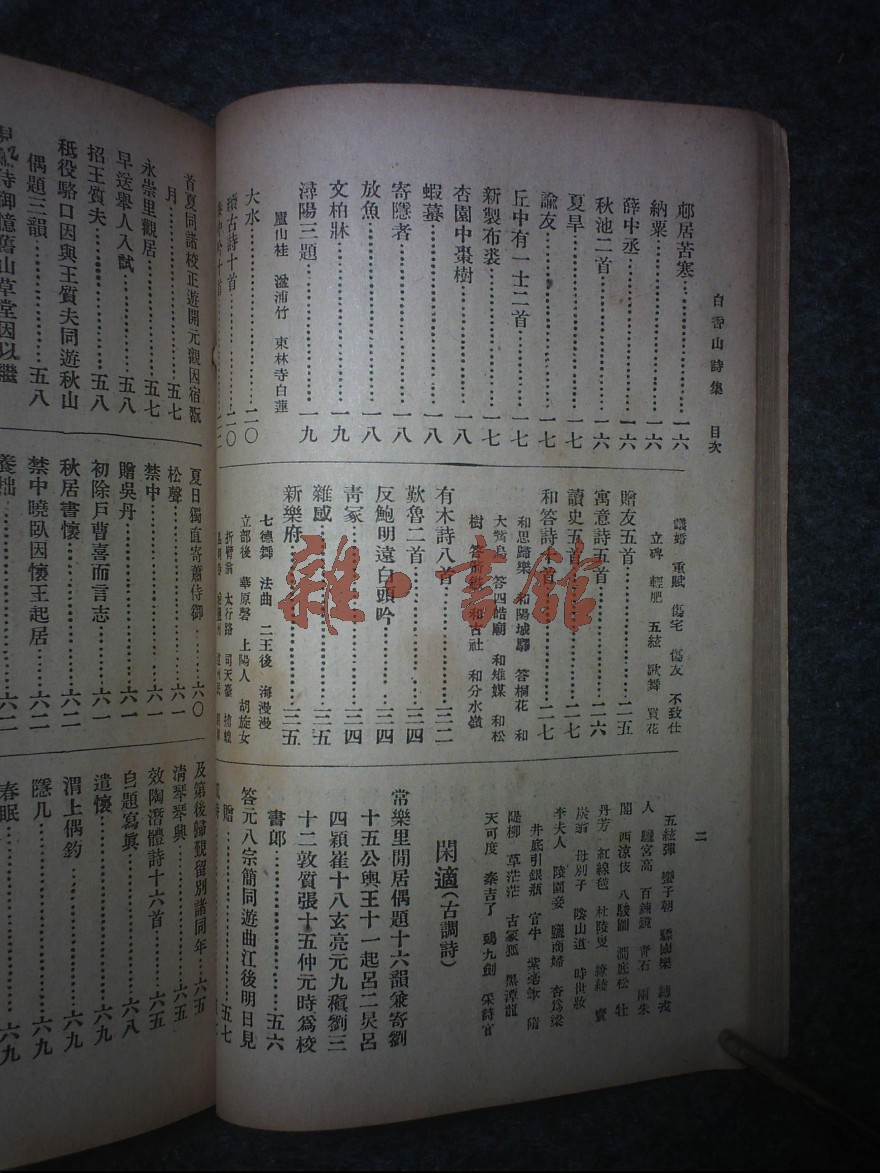 白香山詩集　目次
二
邨居苦寒…………一六
納粟…………一六
薛中丞…………一六
秋池二首…………一六
夏旱…………一七
諭友…………一七
丘中有一士二首…………一七
新製布裘…………一七
杏園中棗樹…………一八
蝦蟇…………一八
寄隱者…………一八
放魚…………一八
文柏牀…………一九
潯陽三題…………一九
廬山桂　湓浦竹　東林寺白蓮
大水…………二〇
續古詩十首…………二〇
議婚　重賦　傷宅　傷友　不致仕
立碑　輕肥　五絃　歌舞　買花
贈友五首…………二五
寓意詩五首…………二六
讀史五首…………二七
和答詩十首…………二七
和思歸樂　和陽城驛　答桐花　和
大觜烏　答四皓廟　和雉媒　和松
樹　答箭鏃　和古社　和分水嶺
有木詩八首…………三二
歎魯二首…………三四
反鮑明遠白頭吟…………三四
青冢…………三四
雜感…………三五
新樂府…………三五
七德舞　法曲　二王後　海漫漫
立部伎　華原磬　上陽人　胡旋女
折臂翁　太行路　司天臺　捕蝗
五絃彈　蠻子朝　驃國樂　縛戎
人　驪宮高　百鍊鏡　青石　兩朱
閣　西涼伎　八駿圖　澗底松　牡
丹芳　紅線毯　杜陵叟　繚綾　賣
炭翁　母別子　陰山道　時世妝
李夫人　陵園妾　鹽商婦　杏爲梁
井底引銀瓶　官牛　紫毫筆　隋
隄柳　草茫茫　古冢狐　黑潭龍
天可度　秦吉了　鵶九劍　采詩官
閑適(古調詩)
常樂里閒居偶題十六韻兼寄劉
十五公輿王十一起呂二炅呂
四頴崔十八玄亮元九稹劉三
十二敦質張十五仲元時爲校
書郎…………五六
答元八宗簡同遊曲江後明日見
贈…………五七
首夏同諸校正遊開元觀因宿翫
月…………五七
永崇里觀居…………五七
早送舉人入試…………五八
招王質夫…………五八
秪役駱口因與王質夫同遊秋山
偶題三韻…………五八
侍御憶舊山草堂因以繼
夏日獨直寄蕭侍御…………六〇
松聲…………六一
禁中…………六一
贈吳丹…………六一
初除戶曹喜而言志…………六一
秋居書懷…………六二
禁中曉臥因懷王起居…………六二
養拙…………六二
及第後歸覲留別諸同年…………六五
清夜琴興…………六五
效陶潛體詩十六首…………六五
自題寫眞…………六八
遣懷…………六九
渭上偶釣…………六九
隱几…………六九
春眠…………六九
雜·書館